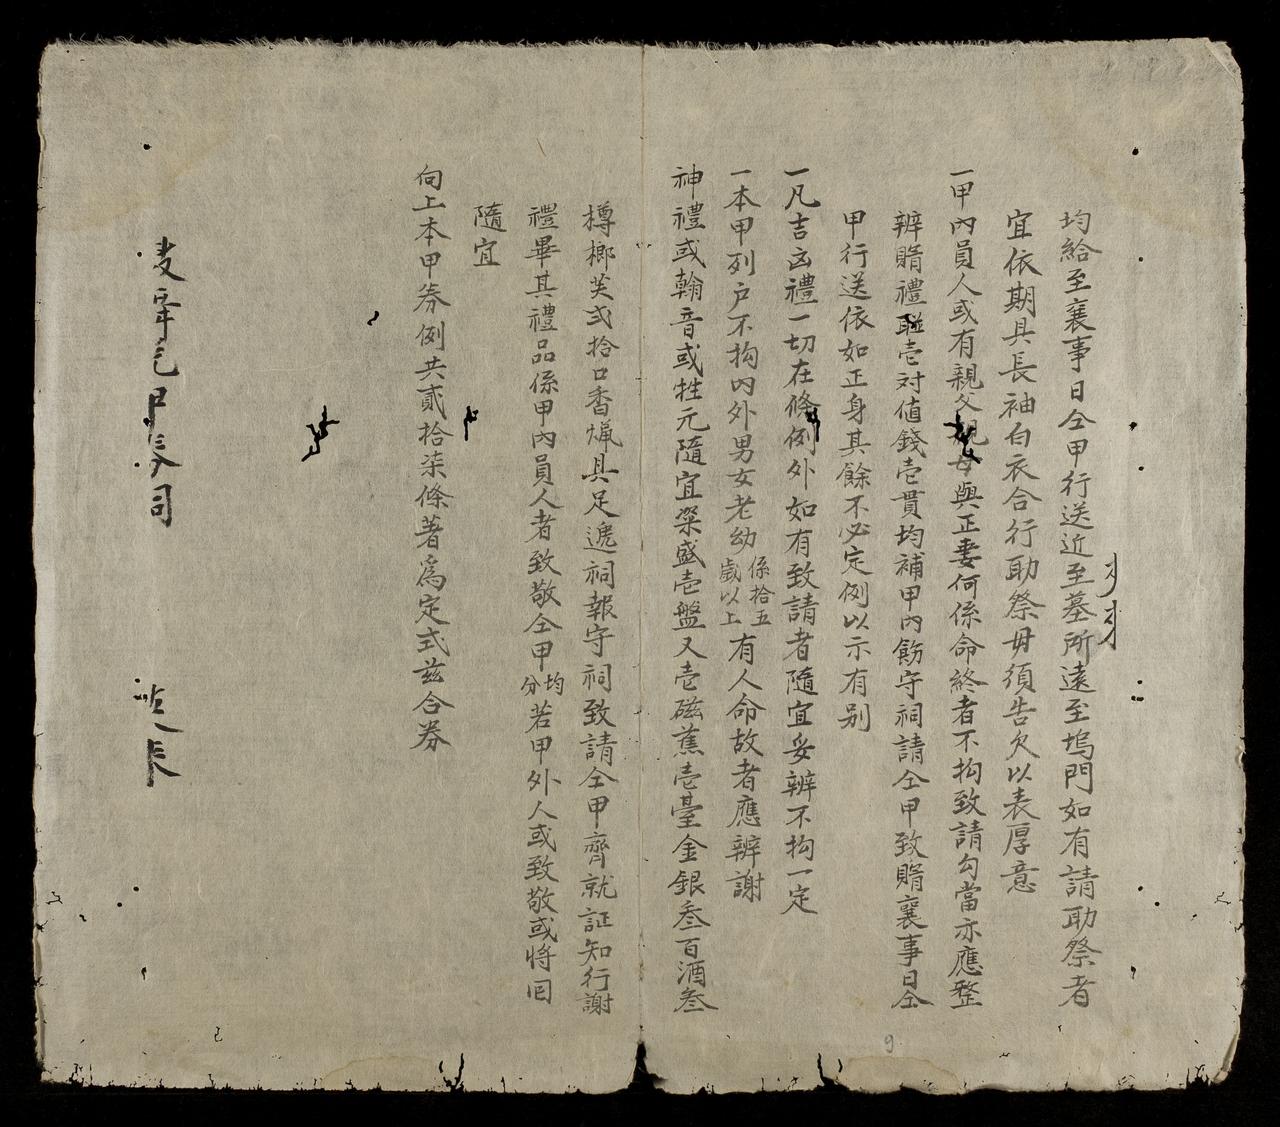 均給至襄事日仝甲行送近至墓所遠至塢門如有請助祭者
宜依期具長袖白衣合行助祭毋須告欠以表厚意
一甲內員人或有親父親母與正妻何係命終者不拘致請勾當亦應整
辨賻禮聮壱対値錢壱貫均補甲內飭守祠請仝甲致賻襄事日仝
甲行送依如正身其餘不必定例以示有別
一凡吉凶禮一切在條例外如有致請者隨宜妥辨不拘一定
一本甲列户不拘內外男女老幼係拾五歲以上有人命故者應辨謝
神禮或翰音或牲元隨宜粢盛壱盤又壱磁蕉壱臺金銀叁百酒叁
樽榔芙弍拾口香燈具足遞祠報守祠致請仝甲齊就証知行謝
禮畢其禮品係甲內員人者致敬仝甲均分若甲外人或致敬或将囘
隨宜
向上本甲券例共貳拾柒條著爲定式兹合券